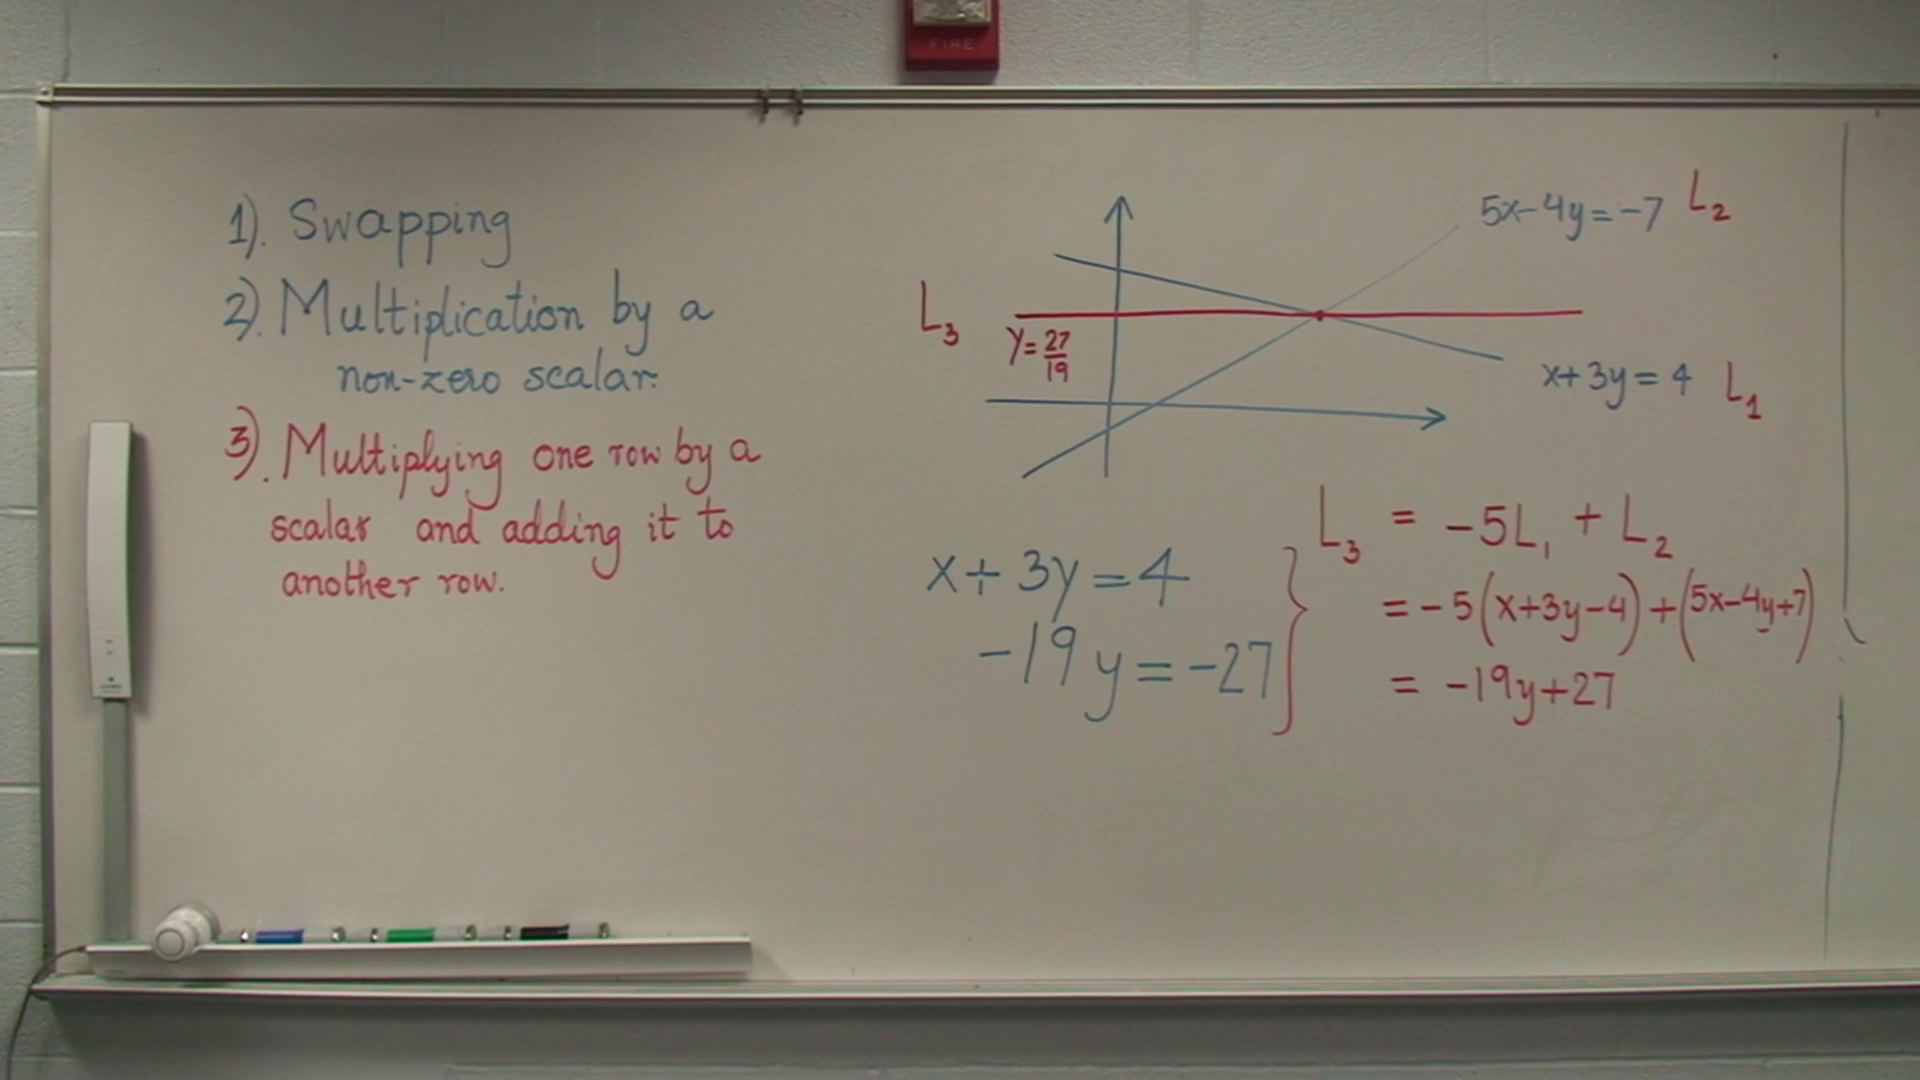 FIRE
1). Swapping
2). Multiplication by a
non-zero scalar.
3). Multiplying one row by a
scalar and adding it to
another row.
5x-4y=-7 L₂
L₃
y=27/19
x+3y=4 L₁
x+3y=4
-19y=-27
L₃ = -5L₁ + L₂
=-5(x+3y-4)+(5x-4y+7)
= -19y+27